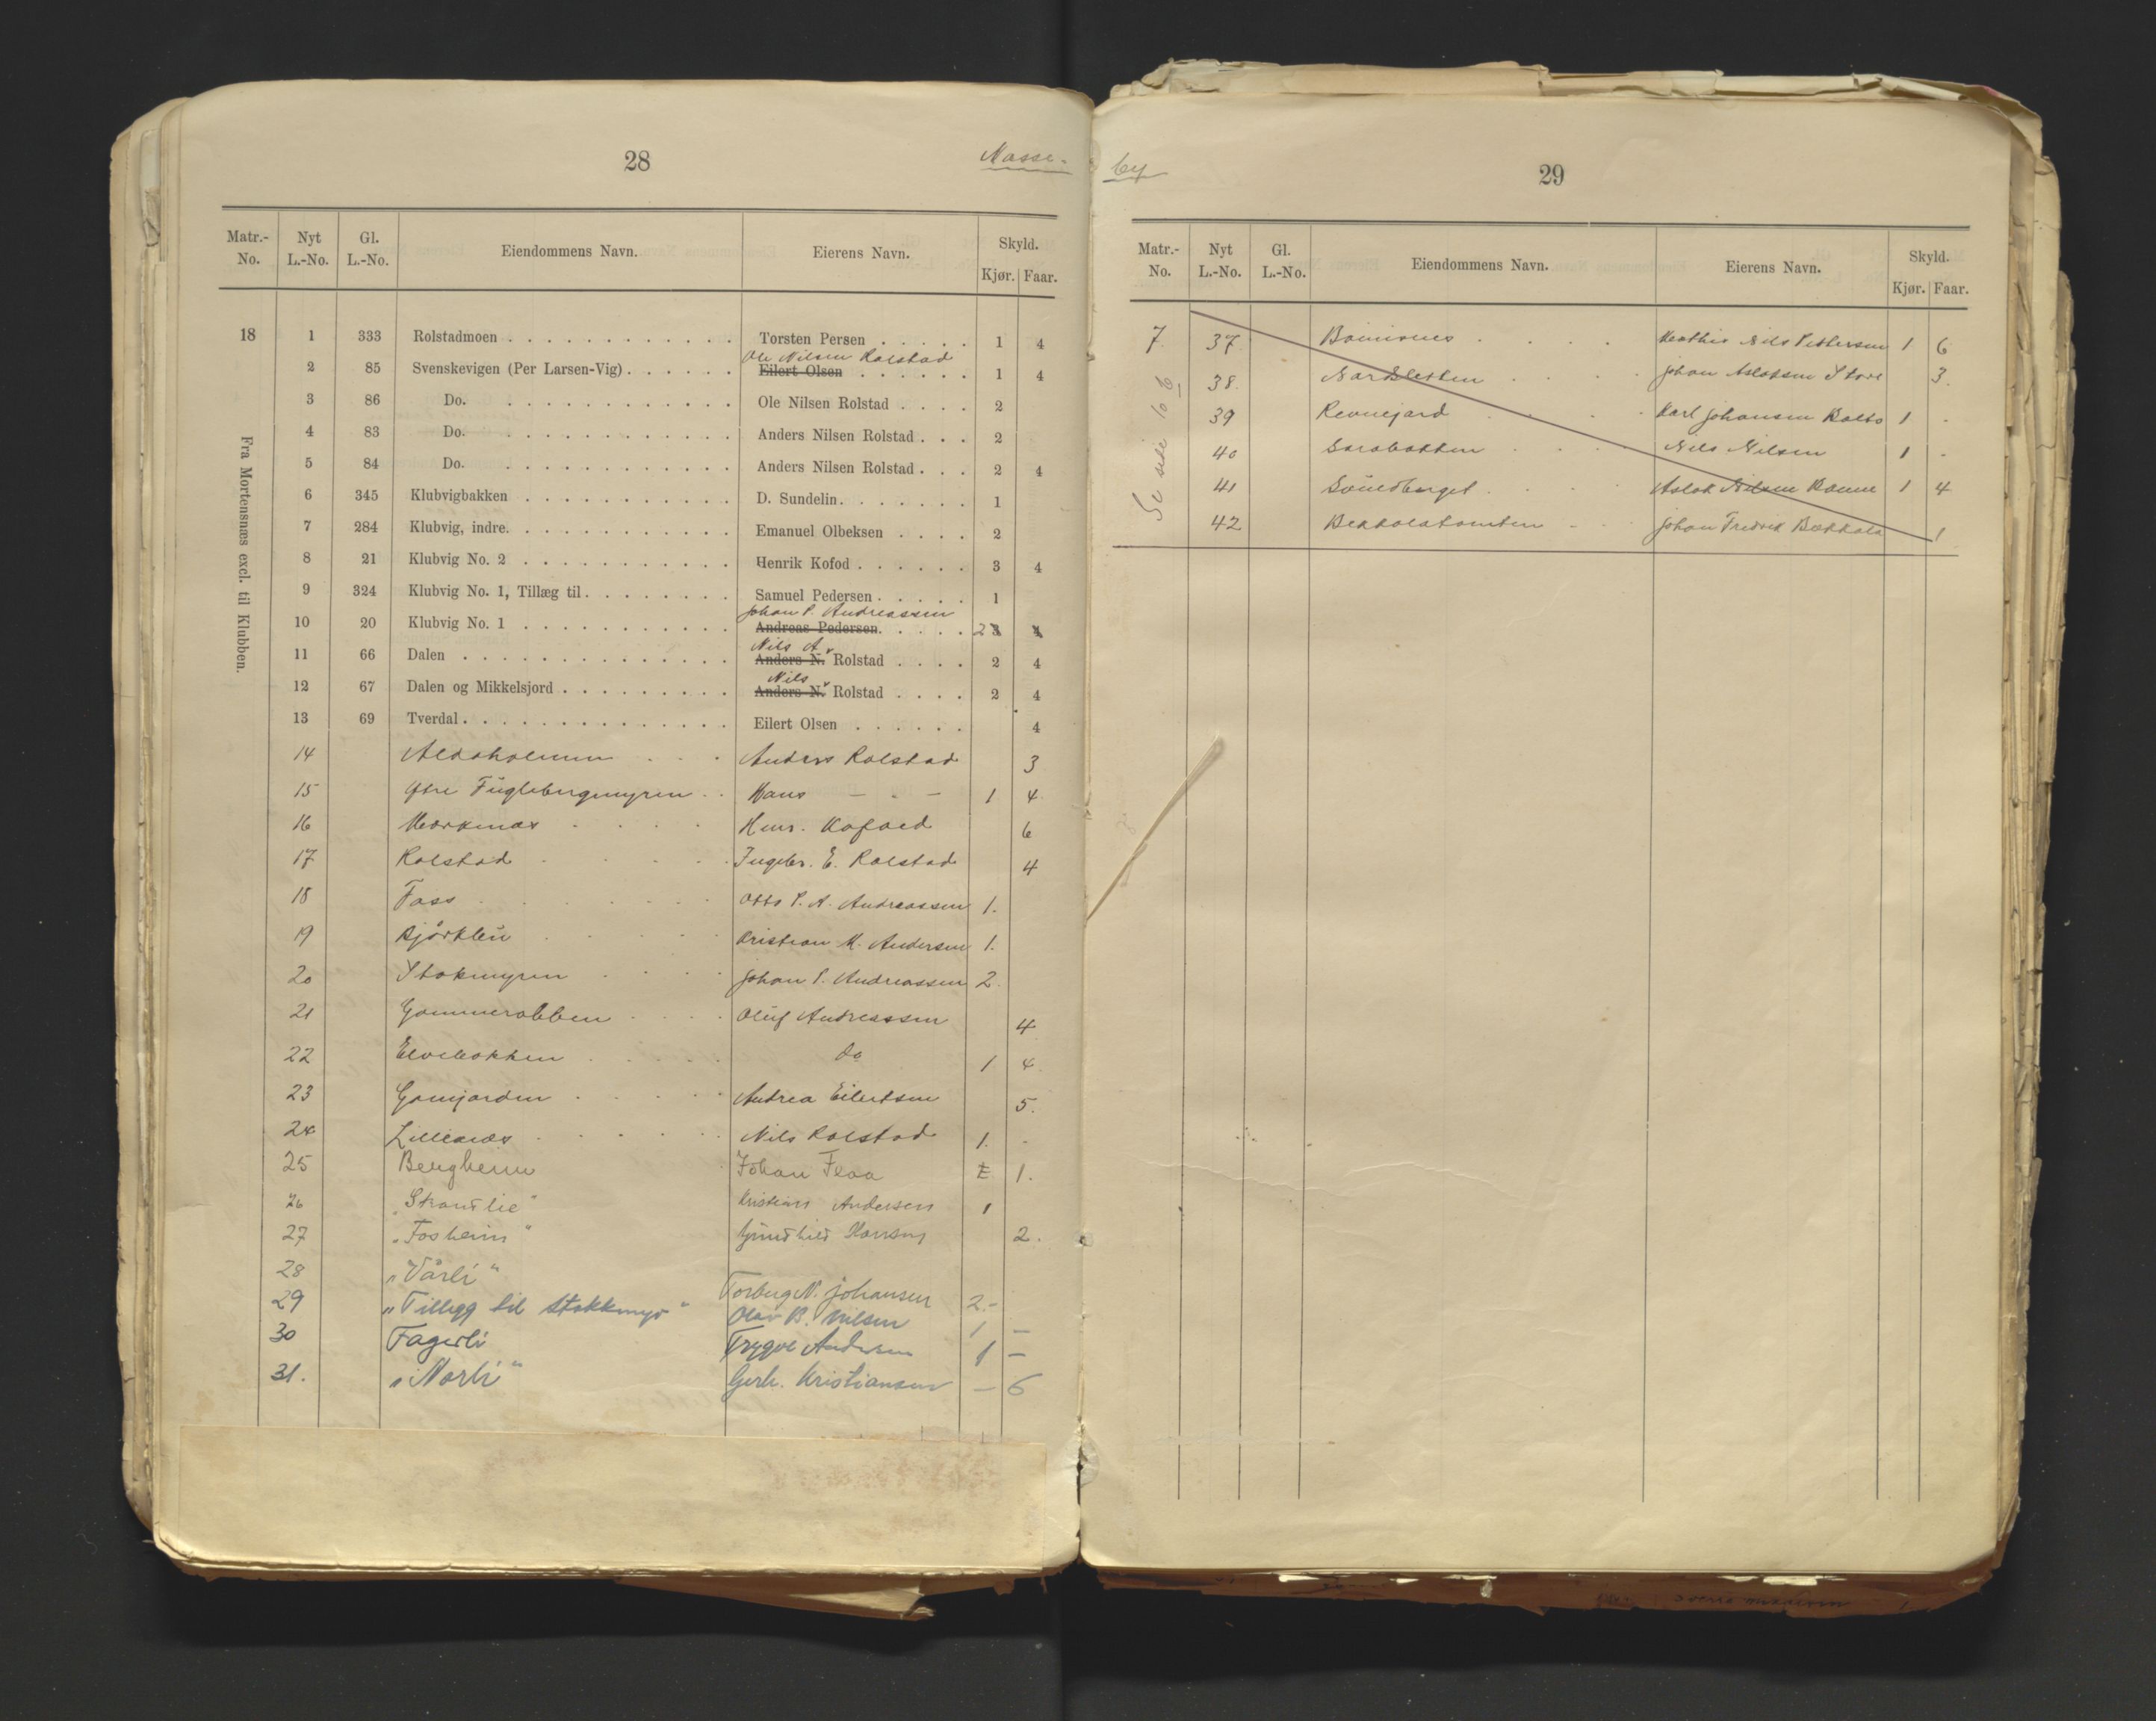 28
Nasse-
Matr.-No. Nyt L.-No. Gl. L.-No. Eiendommens Navn. Eierens Navn. Skyld. Kjør. Faar.
Fra Mortensnæs excl. til Klubben.
18 1 333 Rolstadmoen . . . . Torsten Persen . . . . 1 4
Ole Nilsen Rolstad
2 85 Svenskevigen (Per Larsen-Vig) . . . . Eilert Olsen . . . . 1 4
3 86 Do. . . . . Ole Nilsen Rolstad . . . . 2
4 83 Do. . . . . Anders Nilsen Rolstad . . . 2
5 84 Do. . . . . Anders Nilsen Rolstad . . . 2 4
6 345 Klubvigbakken . . . . D. Sundelin . . . . 1
7 284 Klubvig, indre. . . . . Emanuel Olbeksen . . . . 2
8 21 Klubvig No. 2 . . . . Henrik Kofod . . . . 3 4
9 324 Klubvig No. 1, Tillæg til . . . . Samuel Pedersen . . . . 1
Johan P. Andreassen
10 20 Klubvig No. 1 . . . . Andreas Pedersen. . . . . 2 3 4
Nils A.
11 66 Dalen . . . . Anders N. Rolstad . . . . 2 4
Nils
12 67 Dalen og Mikkelsjord . . . . Anders N. Rolstad . . . . 2 4
13 69 Tverdal . . . . Eilert Olsen . . . . 4
14 Anders Rolstad 3
15 Ytre Fuglebergmyren . . Hans — - — 1 4
16 Henr. Kofoed 6
17 Rolstad . . . . Ingebr. E. Rolstad 4
18 Foss . . . . Otto P. A. Andreassen 1.
19 Bjørkli . . . . Kristian M. Andersen 1.
20 Stokmyren . . . . Johan P. Andreassen 2.
21 Gammerabben . . . . Oluf Andreassen 4
22 Elvebakken . . . . do 1 4
23 Gamjorden . . . . Andrea Eilertsen 5.
24 Lillenes . . . . Nils Rolstad 1. -
25 Bergheim Johan Floa 1.
26 "Strandlie" Kristian Andersen 1
27 "Fosheim" Gundhild Hansen 2.
28 "Vårli" Torberg N. Johansen 2.-
29 "Tillegg til Stokkmyr" Olav B. Nilsen 1 —
30 Fagerli Trygve Andersen 1 —
31. "Norli" Gerh. Kristiansen — 6
by
29
Matr.-No. Nyt L.-No. Gl. L.-No. Eiendommens Navn. Eierens Navn. Skyld. Kjør. Faar.
Se side 10 b
7. 37. Nils Pettersen 1 6
38. Johan Aslaksen Store 3.
39 Revnejord . . . Karl Johansen Balto 1 -
40 Sarabakken . . . Nils Nilsen 1 -
41 Aslak Nilsen 1 4
42 Bekkolatomten Johan Fredrik Bekkala 1